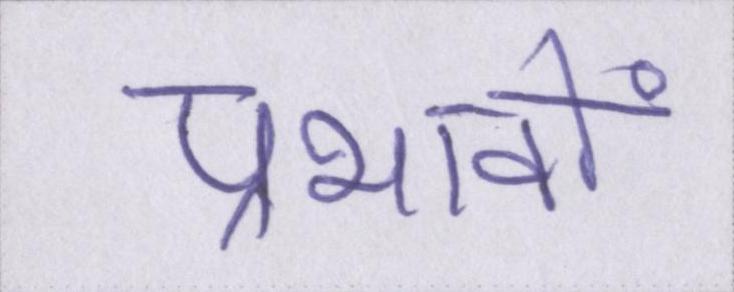 प्रभावों